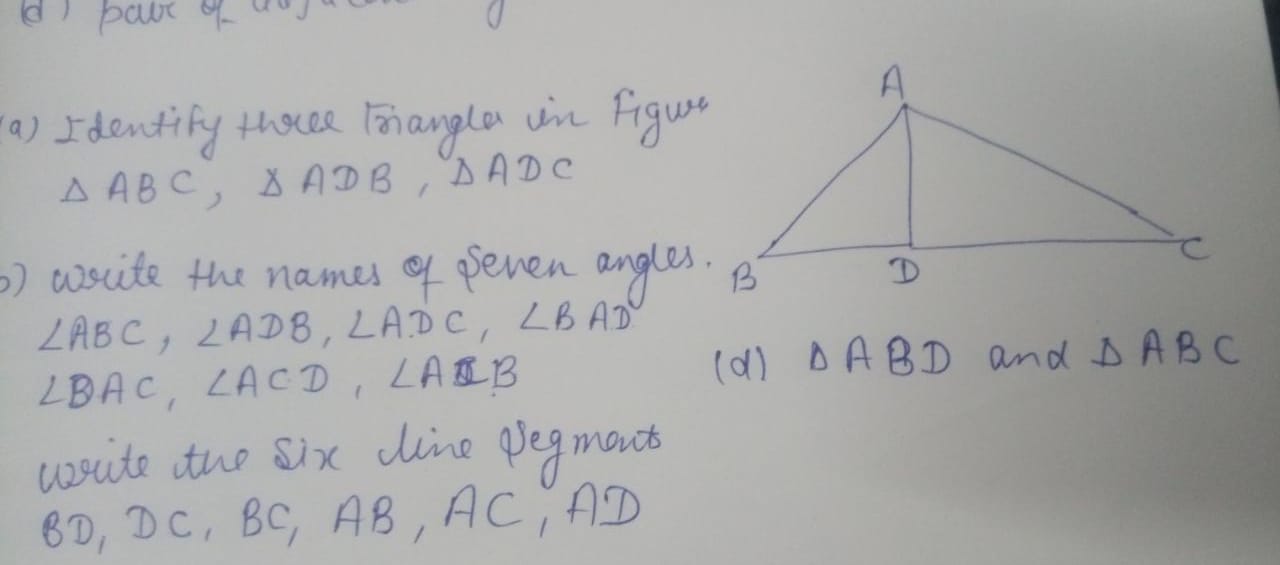 d) pair of
(a) Identify three Triangles in Figure
Δ ABC, Δ ADB, Δ ADC
b) write the names of Seven angles.
∠ABC, ∠ADB, ∠ADC, ∠BAD
∠BAC, ∠ACD, ∠AB
write the six line segments
BD, DC, BC, AB, AC, AD
A
B
D
C
(d) Δ ABD and Δ ABC